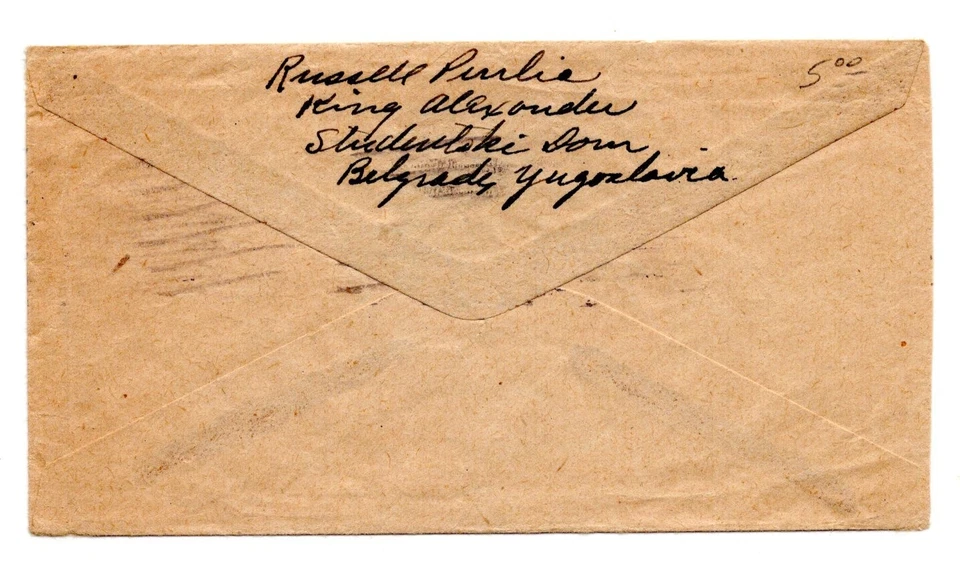 Russell Purlia
5⁰⁰
King Alexander
Studentski Dom
Belgrade, Yugoslavia.